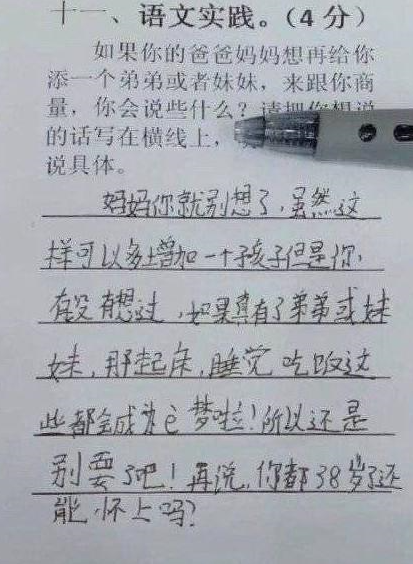 十一、语文实践。（4分）
如果你的爸爸妈妈想再给你
添一个弟弟或者妹妹，来跟你商
量，你会说些什么？请把你想说
的话写在横线上，
说具体。
妈妈你就别想了，虽然这
样可以多增加一个孩子但是你，
有没有想过，如果真有了弟弟或妹
妹，那起床，睡觉吃饭这
些都会成为己梦啦！所以还是
别要了吧！再说，你都38岁了还
能怀上吗？